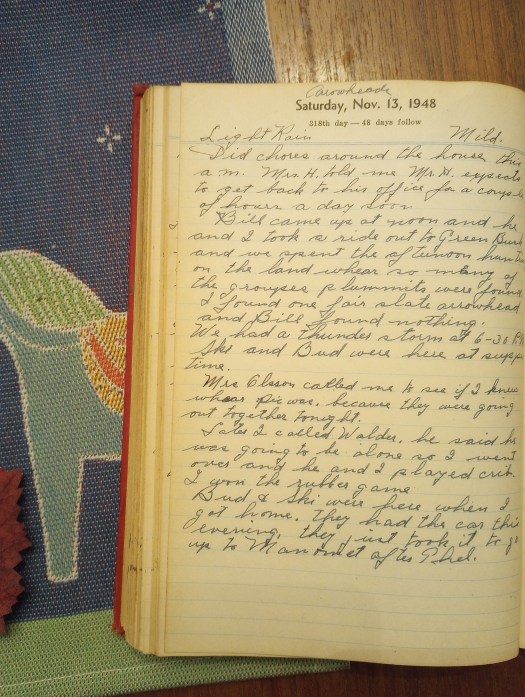 Arrowheads
Saturday, Nov. 13, 1948
318th day—48 days follow
Light Rain Mild.
Did chores around the house this
a.m. Mrs. H. told me Mr. H. expects
to get back to his office for a couple
of hours a day soon
Bill came up at noon and he
and I took a ride out to Green Bush
and we spent the afternoon hunting
on the land whear so many of
the plummits were found
I found one fair slate arrowhead
and Bill found nothing.
We had a thunder storm at 6-30 P.M.
Ski and Bud were here at supper
time.
Mrs Olsson called me to see if I knew
whear was, because they were going
out together tonight.
Later I called Walder, he said he
was going to be alone so I went
over and he and I played crib.
I won the rubber game
Bud & Ski were here when I
got home. they had the car this
evening, they just took it to go
up to Manomet after Phil.